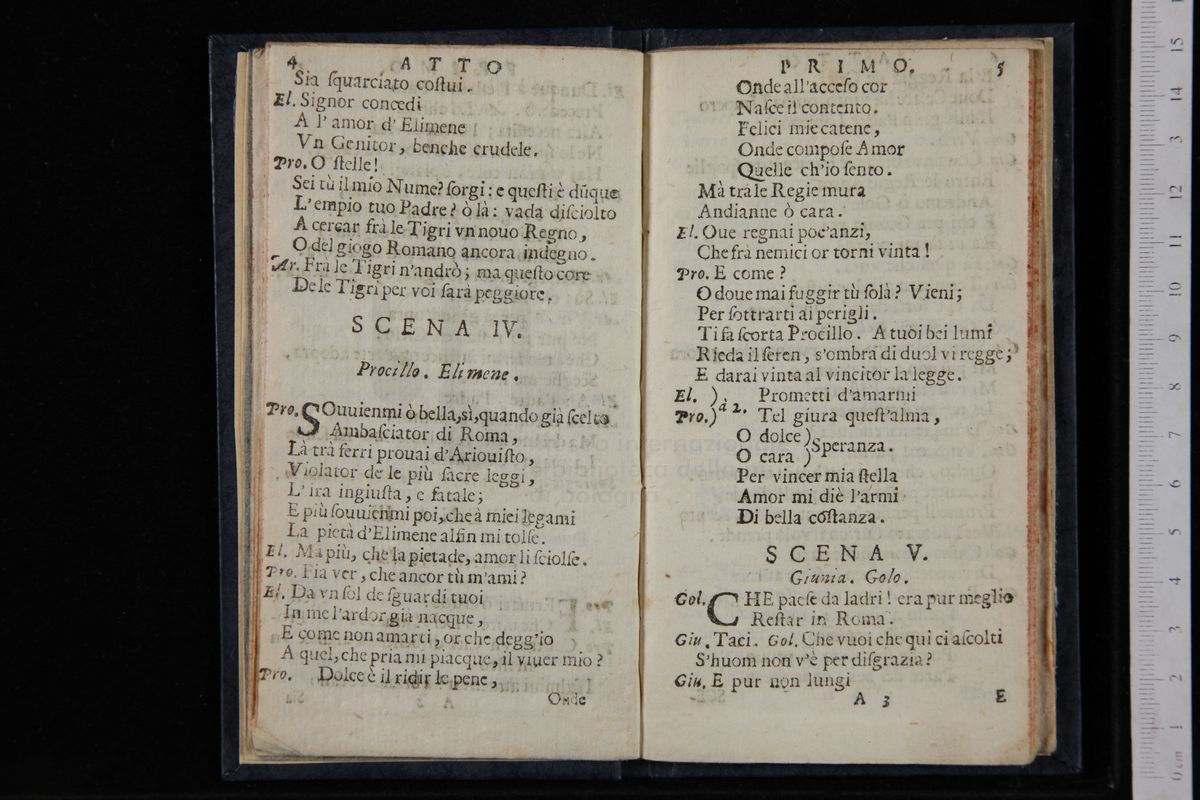 4 ATTO
Sia ſquarciato coſtui.
El. Signor concedi
A l'amor d'Elimene
Vn Genitor, benche crudele.
Pro. O ſtelle!
Sei tù il mio Nume? ſorgi: e queſti è dũque
L'empio tuo Padre? ò là: vada diſciolto
A cercar frà le Tigri vn nouo Regno,
O del giogo Romano ancora indegno.
Ar. Frà le Tigri n'andrò; ma queſto core
De le Tigri per voi ſarà peggiore.
SCENA IV.
Procillo. Elimene.
Pro. SOuuienmi ò bella, sì, quando già ſcelto
Ambaſciator di Roma,
Là trà ferri prouai d'Ariouiſto,
Violator de le più ſacre leggi,
L'ira ingiuſta, e fatale;
E più ſouuienmi poi, che à miei legami
La pietà d'Elimene alfin mi tolſe.
El. Ma più, che la pietade, amor li ſciolſe.
Pro. Fia ver, che ancor tù m'ami?
El. Da vn ſol de ſguardi tuoi
In me l'ardor già nacque,
E come non amarti, or che degg'io
A quel, che pria mi piacque, il viuer mio?
Pro. Dolce è il ridir le pene,
Onde
PRIMO. 5
Onde all'acceſo cor
Naſce il contento.
Felici mie catene,
Onde compoſe Amor
Quelle ch'io ſento.
Mà trà le Regie mura
Andianne ò cara.
El. Oue regnai poc'anzi,
Che frà nemici or torni vinta!
Pro. E come?
O doue mai fuggir tù ſola? Vieni;
Per ſottrarti ai perigli.
Ti fà ſcorta Procillo. A tuoi bei lumi
Rieda il ſeren, s'ombra di duol vi regge;
E darai vinta al vincitor la legge.
El. ) Prometti d'amarmi
Pro.) à 2. Tel giura queſt'alma,
O dolce)
O cara ) Speranza.
Per vincer mia ſtella
Amor mi diè l'armi
Di bella coſtanza.
SCENA V.
Giunia. Golo.
Gol. CHE paeſe da ladri! era pur meglio
Reſtar in Roma.
Giu. Taci. Gol. Che vuoi che qui ci aſcolti
S'huom non v'è per diſgrazia?
Giu. E pur non lungi
A 3 E